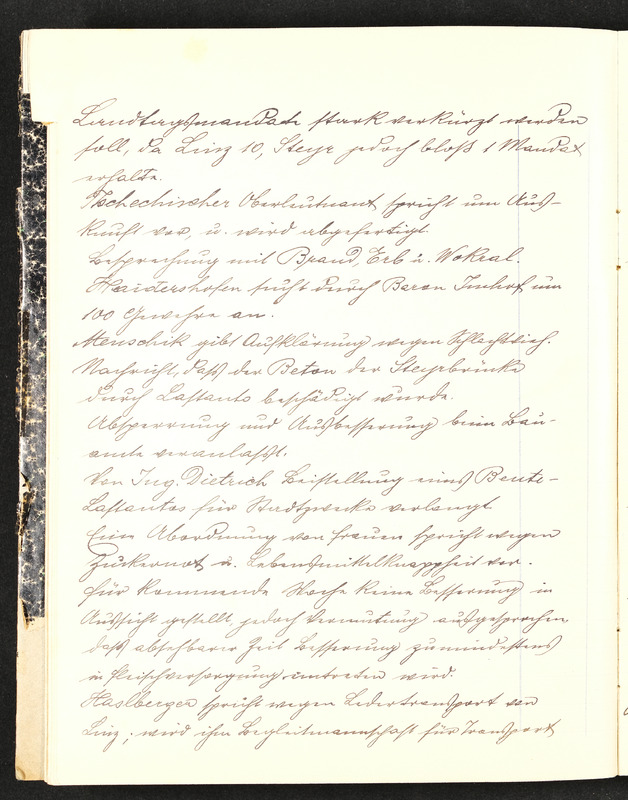 Landtagsmandate stark verkürzt werden
soll, da Linz 10, Steyr jedoch bloß 1 Mandat
erhalte.
Tschechischer Oberleutnant spricht um Aus-
kunft vor, u. wird abgefertigt.
Besprechung mit Brand, Erb u. Wokral.
Haidershofen sucht durch Baron Imhof um
100 Gewehre an.
Menschik gibt Aufklärung wegen Schlachtvieh.
Nachricht, daß der Beton der Steyrbrücke
durch Lastauto beschädigt wurde.
Absperrung und Ausbesserung beim Bau-
amte veranlaßt.
Von Ing. Dietrich Beistellung eines Beute-
Lastautos für Stadtzwecke verlangt
Eine Abordnung von Frauen spricht wegen
Zuckernot u. Lebensmittelknappheit vor.
Für kommende Woche keine Besserung in
Aussicht gestellt, jedoch Vermutung ausgesprochen,
daß absehbarer Zeit Besserung zumindestens
in Fleischversorgung eintreten wird.
Haslberger spricht wegen Ledertransport von
Linz; wird ihm Begleitmannschaft für Transport